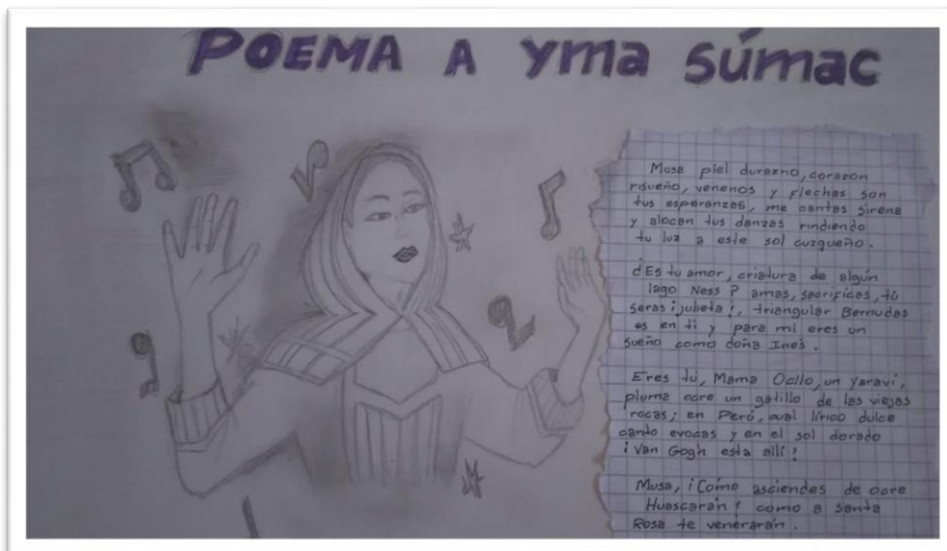 POEMA A yma súmac
Musa piel durazno, corazon
risueño, venenos y flechas son
tus esperanzas, me cantas sirena
y alocan tus danzas rindiendo
tu luz a este sol cuzqueño.
¿Es tu amor, criatura de algún
lago Ness? amas, sacrificas, tú
seras ¡julieta!, triangular Bermudas
es en ti y para mi eres un
sueño como doña Inés.
Eres tú, Mama Ocllo, un yaraví,
pluma ocre un gatillo de las viejas
rocas; en Perú, cual lírico dulce
canto evocas y en el sol dorado
¡Van Gogh esta allí!
Musa, ¡Cómo asciendes de ocre
Huascarán! como a Santa
Rosa te venerarán.